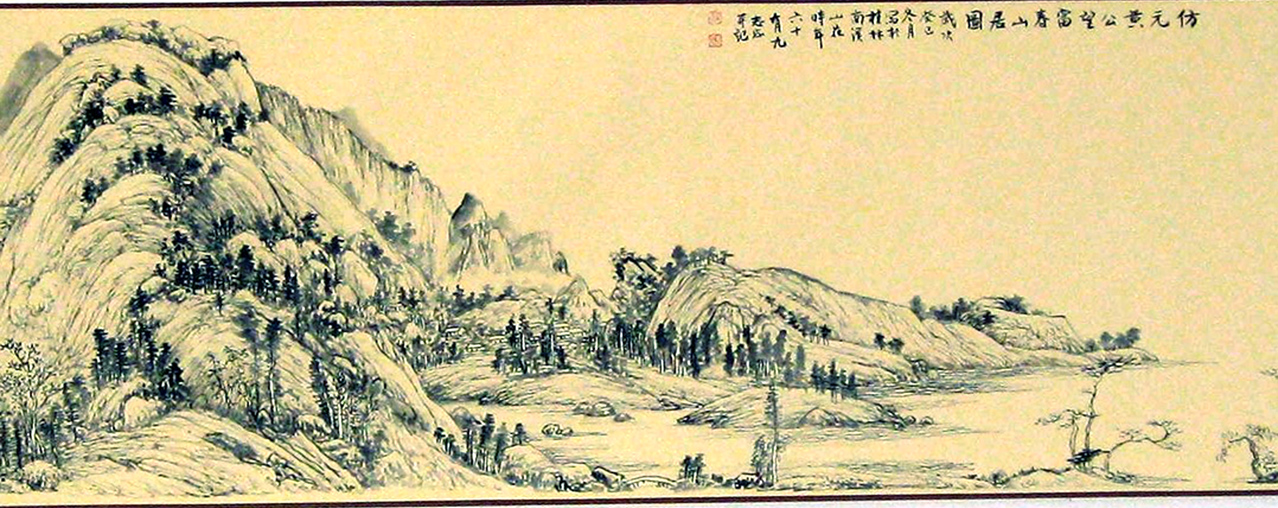 仿元黄公望富春山居圖
歲次
癸巳
冬月
写於
桂林
南溪
山莊
時年
六十
有九